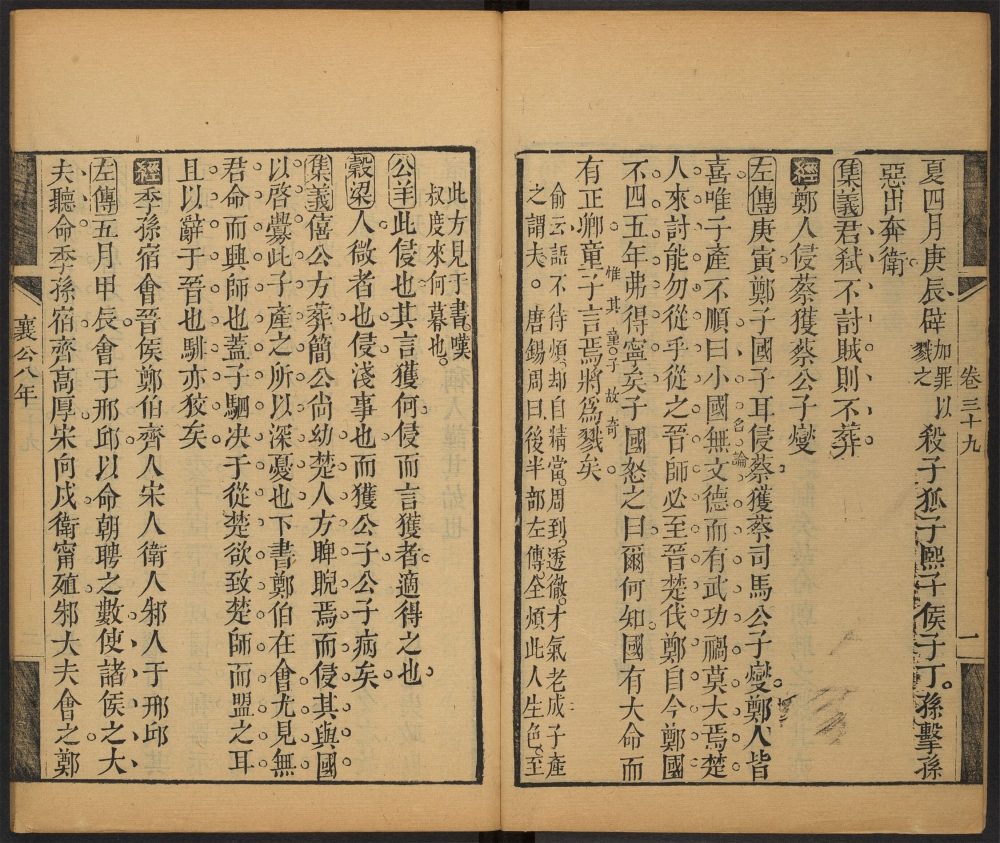 卷三十九
一
夏四月庚辰辟
加罪以
戮之
殺子狐子熙子侯子丁孫擊孫
惡出奔衛
集義君弒不討賊則不葬
經鄭人侵蔡獲蔡公子燮
左傳庚寅鄭子國子耳侵蔡獲蔡司馬公子燮鄭人皆
名論
喜唯子產不順曰小國無文德而有武功禍莫大焉楚
人來討能勿從乎從之晉師必至晉楚伐鄭自今鄭國
不四五年弗得寧矣子國怒之曰爾何知國有大命而
惟其童子故奇
有正卿童子言焉將爲戮矣
俞云語不待煩却自精當周到透徹才氣老成子產
之謂夫。唐錫周曰後半部左傳全煩此人生色至
此方見于書嘆
叔度來何暮也
公羊此侵也其言獲何侵而言獲者適得之也
穀梁人微者也侵淺事也而獲公子公子病矣
集義僖公方葬簡公尚幼楚人方睥睨焉而侵其與國
以啓釁此子產之所以深憂也下書鄭伯在會尤見無
君命而興師也蓋子駟決于從楚欲致楚師而盟之耳
且以辭于晉也駟亦狡矣
經季孫宿會晉侯鄭伯齊人宋人衛人邾人于邢邱
左傳五月甲辰會于邢邱以命朝聘之數使諸侯之大
夫聽命季孫宿齊高厚宋向戌衛甯殖邾大夫會之鄭
襄公八年
二